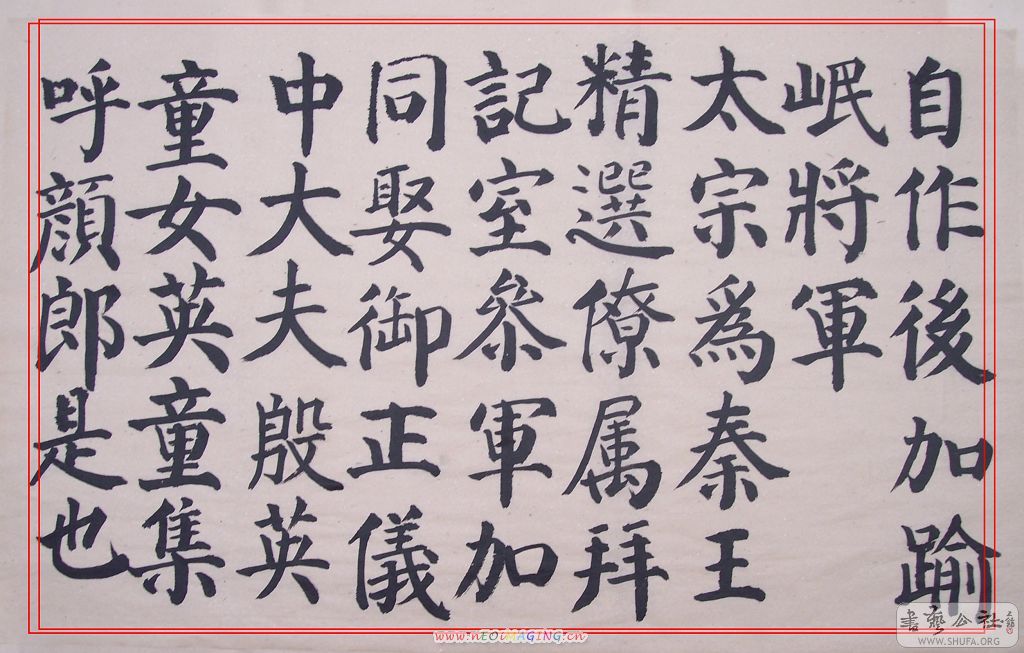 自作後加踰
岷將軍
太宗爲秦王
精選僚属拜
記室叅軍加
同娶御正儀
中大夫殷英
童女英童集
呼顔郎是也
www.nEOiMAGING.cn
书艺公社
WWW.SHUFA.ORG